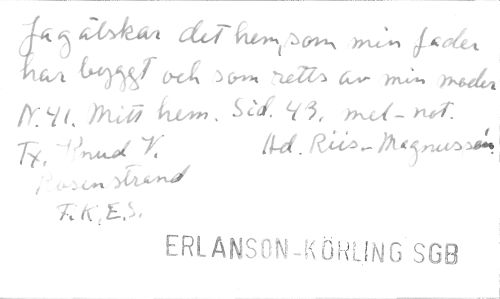 Jag älskar det hem, som min fader
har byggt och som retts av min moder
N. 41. Mitt hem. Sid. 43. mel-not.
Tx. Knud V. Hd. Riis-Magnussen.
Rosenstrand
F.K.E.S.
ERLANSON-KÖRLING SGB